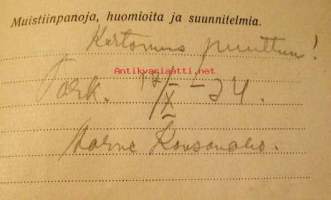 Muistiinpanoja, huomioita ja suunnitelmia.
Kertomus puuttuu!
Antikvariaatti.net
Tark. 12/X-34.
Aarne